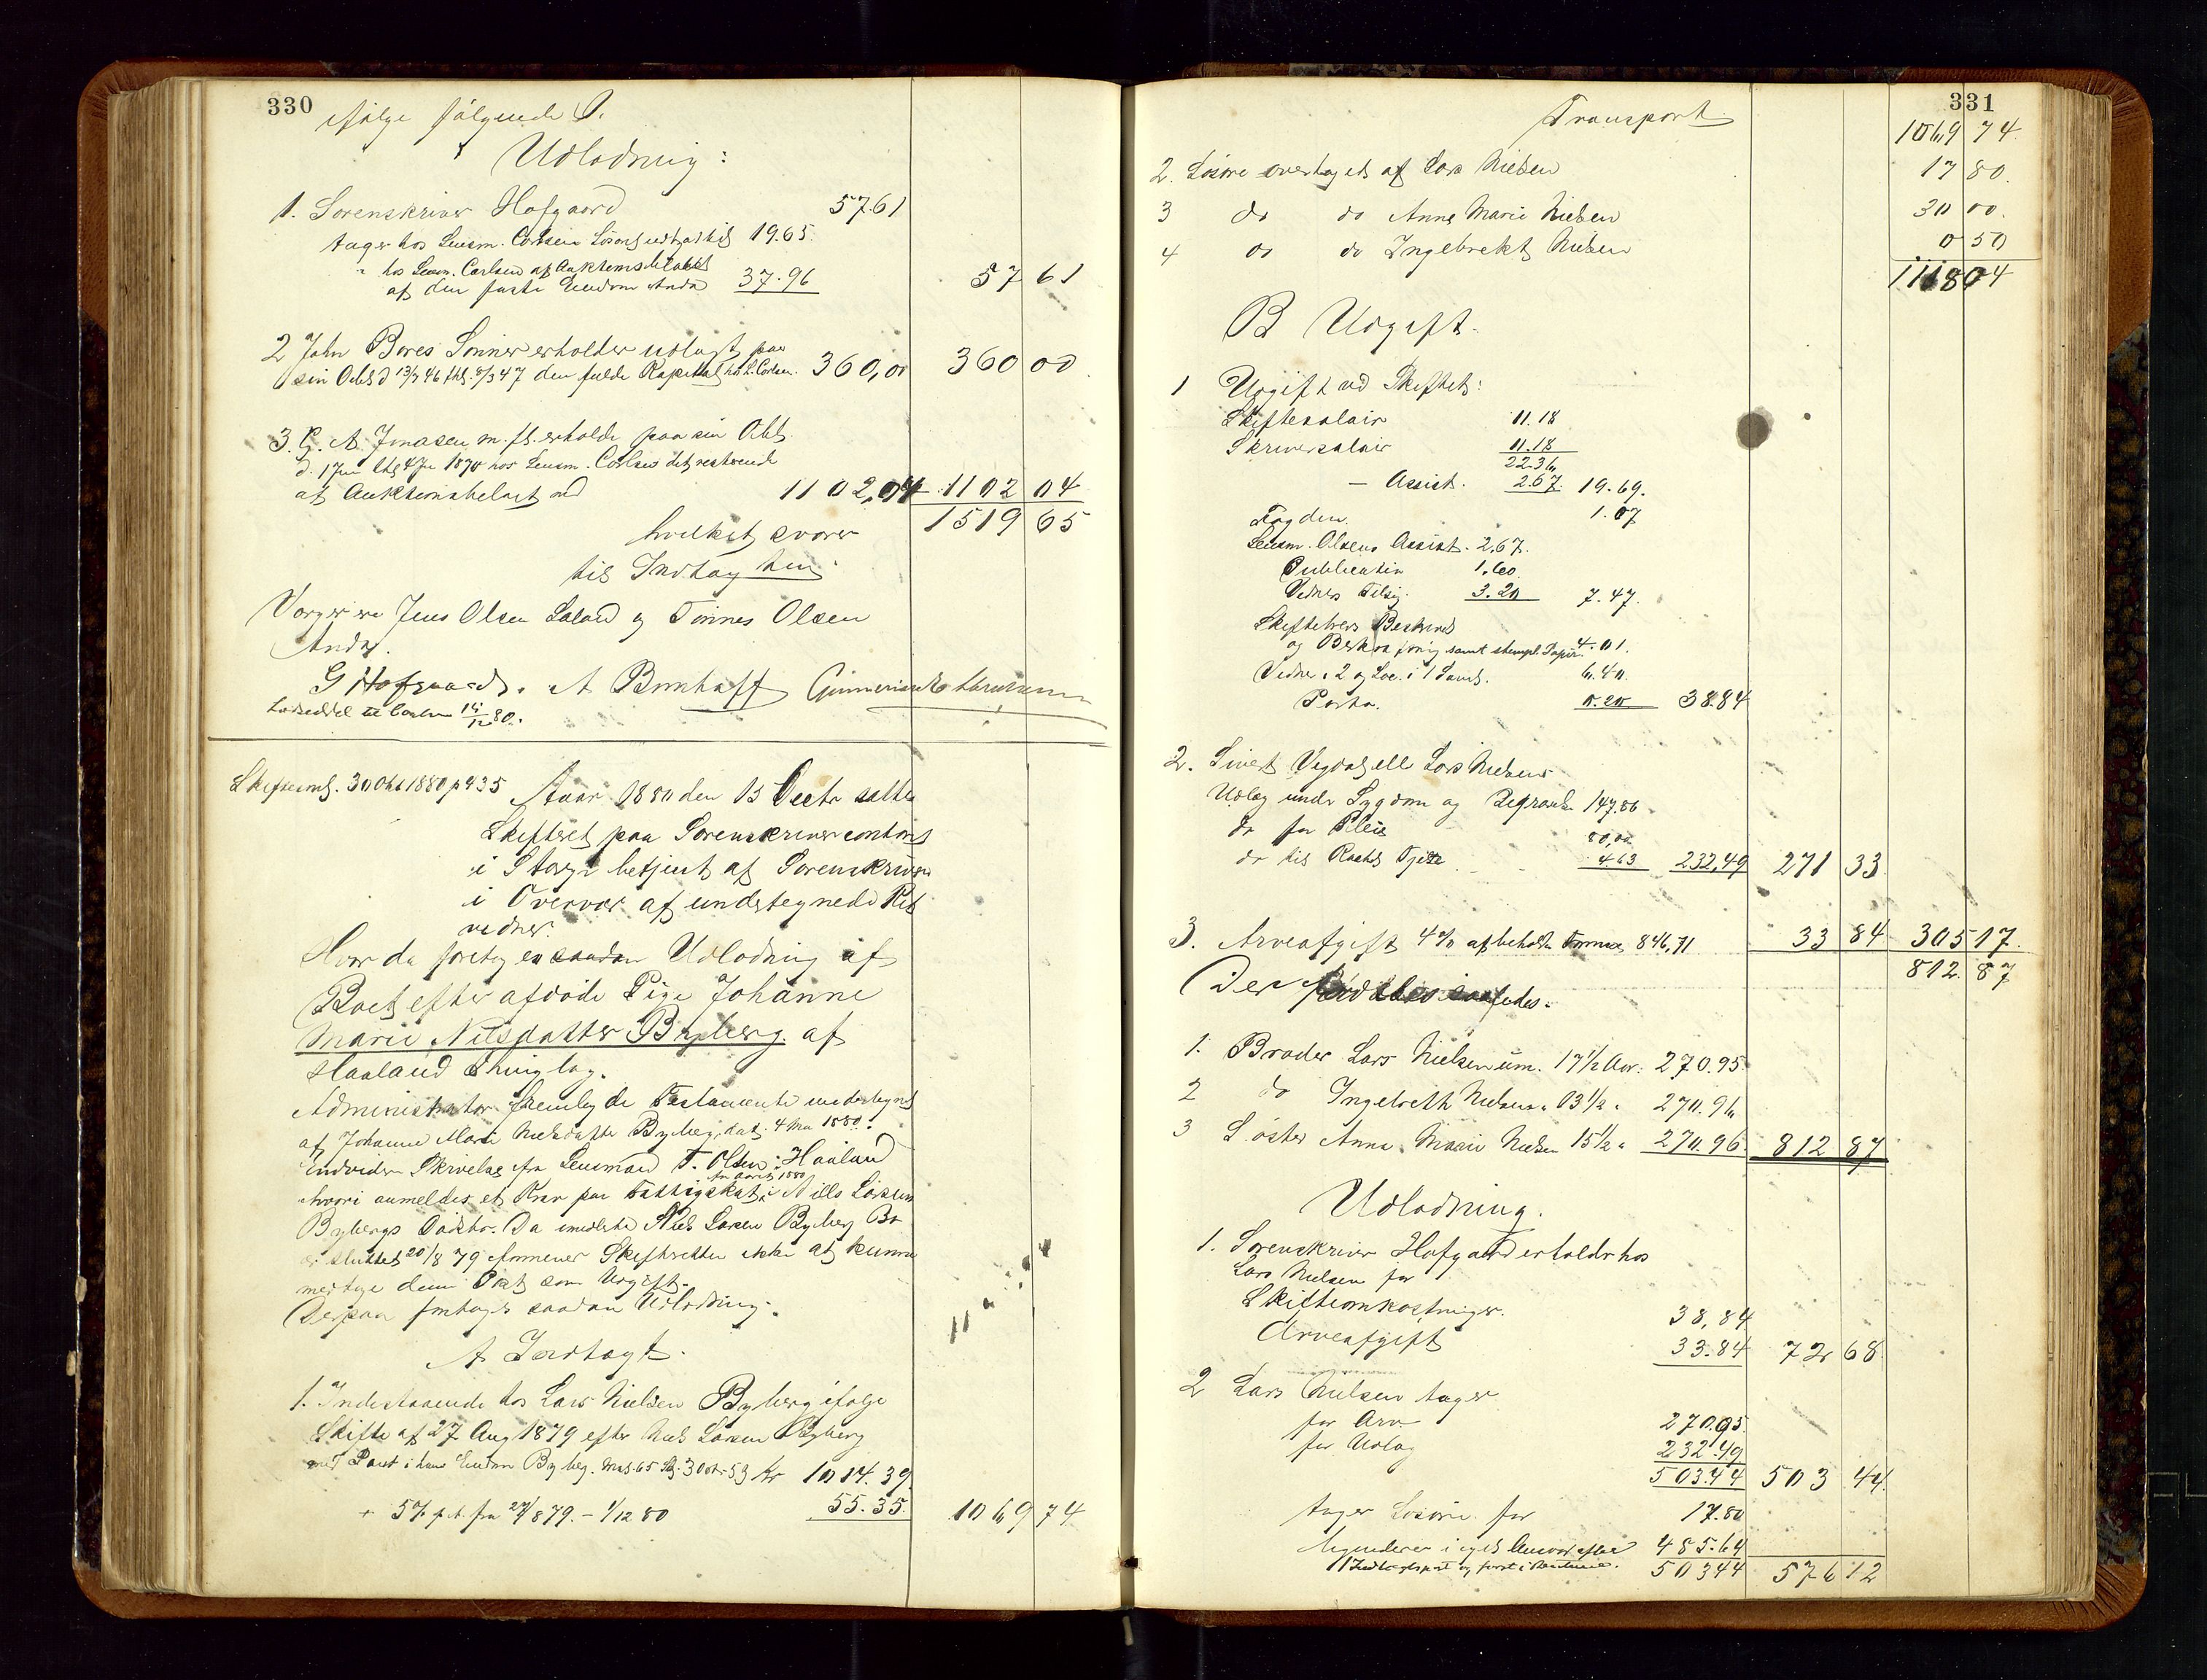 330
ifölge følgende
Udlodning:
1. Sorenskriver Hofgaard 57.61
tager hos Lensm. Carlsen 19.65
" hos Lensm. Carlsen af Auktionsbeløbet
af den faste Eiendom Anda 37.96 57 61
2 John Bores Sønner erholder udlagt paa
sin Obl. d 13/3 46 thl. 8/3 47 den fulde Kapital hos L. Carlsen. 360,00 360 00
3. A. Jonasen m. fl. erholde paa sin Obl.
1870 hos Lensm. Carlsen det resterende
af Auktionsbeløbet med 1102,04 1102 04
1519 65
hvilket svarer
til Indtagten.
Værger ere Jens Olsen Laland og Tönnes Olsen
Anda.
G Hofgaard.
Lodseddel til Carlsen 15/12 80.
Skiftesaml. 30 Okt 1880 p 435 Aar 1880 den 15 Decbr sattes
Skifteret paa Sorenskrivercontoret
i betjent af Sorenskriveren
i Overvær af undertegnede Ret
vidner.
Hvor da foretoges saadan Udlodning af
Boet efter afdöde Pige Johanne
Marie Nilsdatter Byberg af
Haaland Thinglag.
Administrator fremlagde Testamente undertegnet
af Johanne Marie Nielsdatter Byberg, dat. 4 Mai 1880.
Endvidere Skrivelse fra Lensmand T. Olsen Haaland
for Aaret 1880
hvori anmeldes et Krav paa Fattigskat i Nills Larsen
Bybergs Datter. Da imidlertid Niels Larsen Byberg Bo
er sluttet 20/8 79 formener Skifteretten ikke at kunne
medtage denne Post som Udgift.
Derpaa foretoges saadan Udlodning:
A Indtægt.
1. Indestaaende hos Lars Nielsen Byberg ifølge
Skifte af 27 Aug 1879 efter Niels Larsen Byberg
med Pant i hans Eiendom Byberg. Mat. 65 Kr 1014.39
+ 5% p. A. fra 27/8 79. - 1/12 80 55.35. 1069 74
331
Transport 1069 74
2. Lösöre overtaget af Lars Nielsen 17 80.
3 do do Anne Marie Nielsen 30 00.
4 do do Ingebrekt Nielsen 0 50
1118 04
B Udgift.
1 Udgift ved Skiftet:
Skiftesalair 11.18
Skriversalair 11.18
22.36
- Assist. 2.67. 19.69.
Fogden. 1.07
Lensm. Olsens Assist. 2.67.
Publication 1.60.
Vidners Tilsig. 3.20 7.47.
Skiftebrevs Beskrivelse
og samt stempl. Papir. 4.01.
6.40.
Porto. 0.20 38.84
2. Sivert Vigdal ell Lars Nielsens
Udlæg under Sygdom og Begravelse 147.86
do for Pleie 80,00
do til 4.63 232,49 271 33
3. Arveafgift 4% af beholdn Formue 846,71 33 84 305 17.
812 87
Der fordeles saaledes:
1. Broder Lars Nielsen um. 17½ Aar: 270.95
2 do Ingebreth Nielsen " 13½ " 270.96
3 Søster Anna Marie Nielsen 15½ " 270.96 812 87
Udlodning.
1. Sorenskriver Hofgaard erholdr hos
Lars Nielsen for
Skifteomkostninger. 38,84
Arveafgift 33.84 72 68
2 Lars Nielsen tager
for Arv 270.95
for Udlæg 232.49
503.44 503 44.
tager Lösöre for 17.80
485.64
503 44 576 12